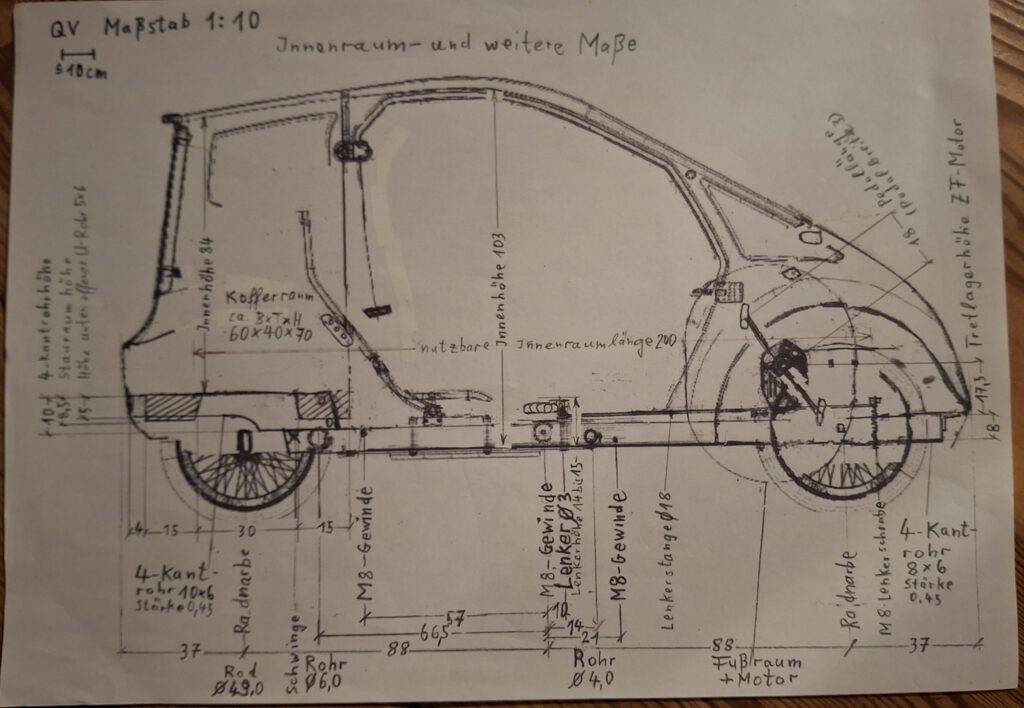 QV Maßstab 1:10
≙ 10cm
Innenraum- und weitere Maße
Pedallänge
(Pedalbreite 3)
18
Tretlagerhöhe ZF-Motor
17,3
8
4-Kantrohrhöhe
Stauraum höhe
Höhe unten offenes U-Rohr 5x6
10
15
Innenhöhe 84
Innenhöhe 103
Kofferraum
ca. BxTxH
60x40x70
nutzbare Innenraumlänge 200
4
15
30
15
4-Kant-
rohr 10x6
Stärke 0,45
Radnarbe
Schwinge
M8-Gewinde
M8-Gewinde
Lenker Ø3
Lenkerhöhe 14 bis 15
M8-Gewinde
Lenkerstange Ø18
Radnarbe
M8-Lenkerschraube
4-Kant-
rohr
8x6
Stärke
0.45
57
10
66,5
14
21
37
88
88
37
Rad
Ø49,0
Rohr
Ø6,0
Rohr
Ø4,0
Fußraum
+Motor